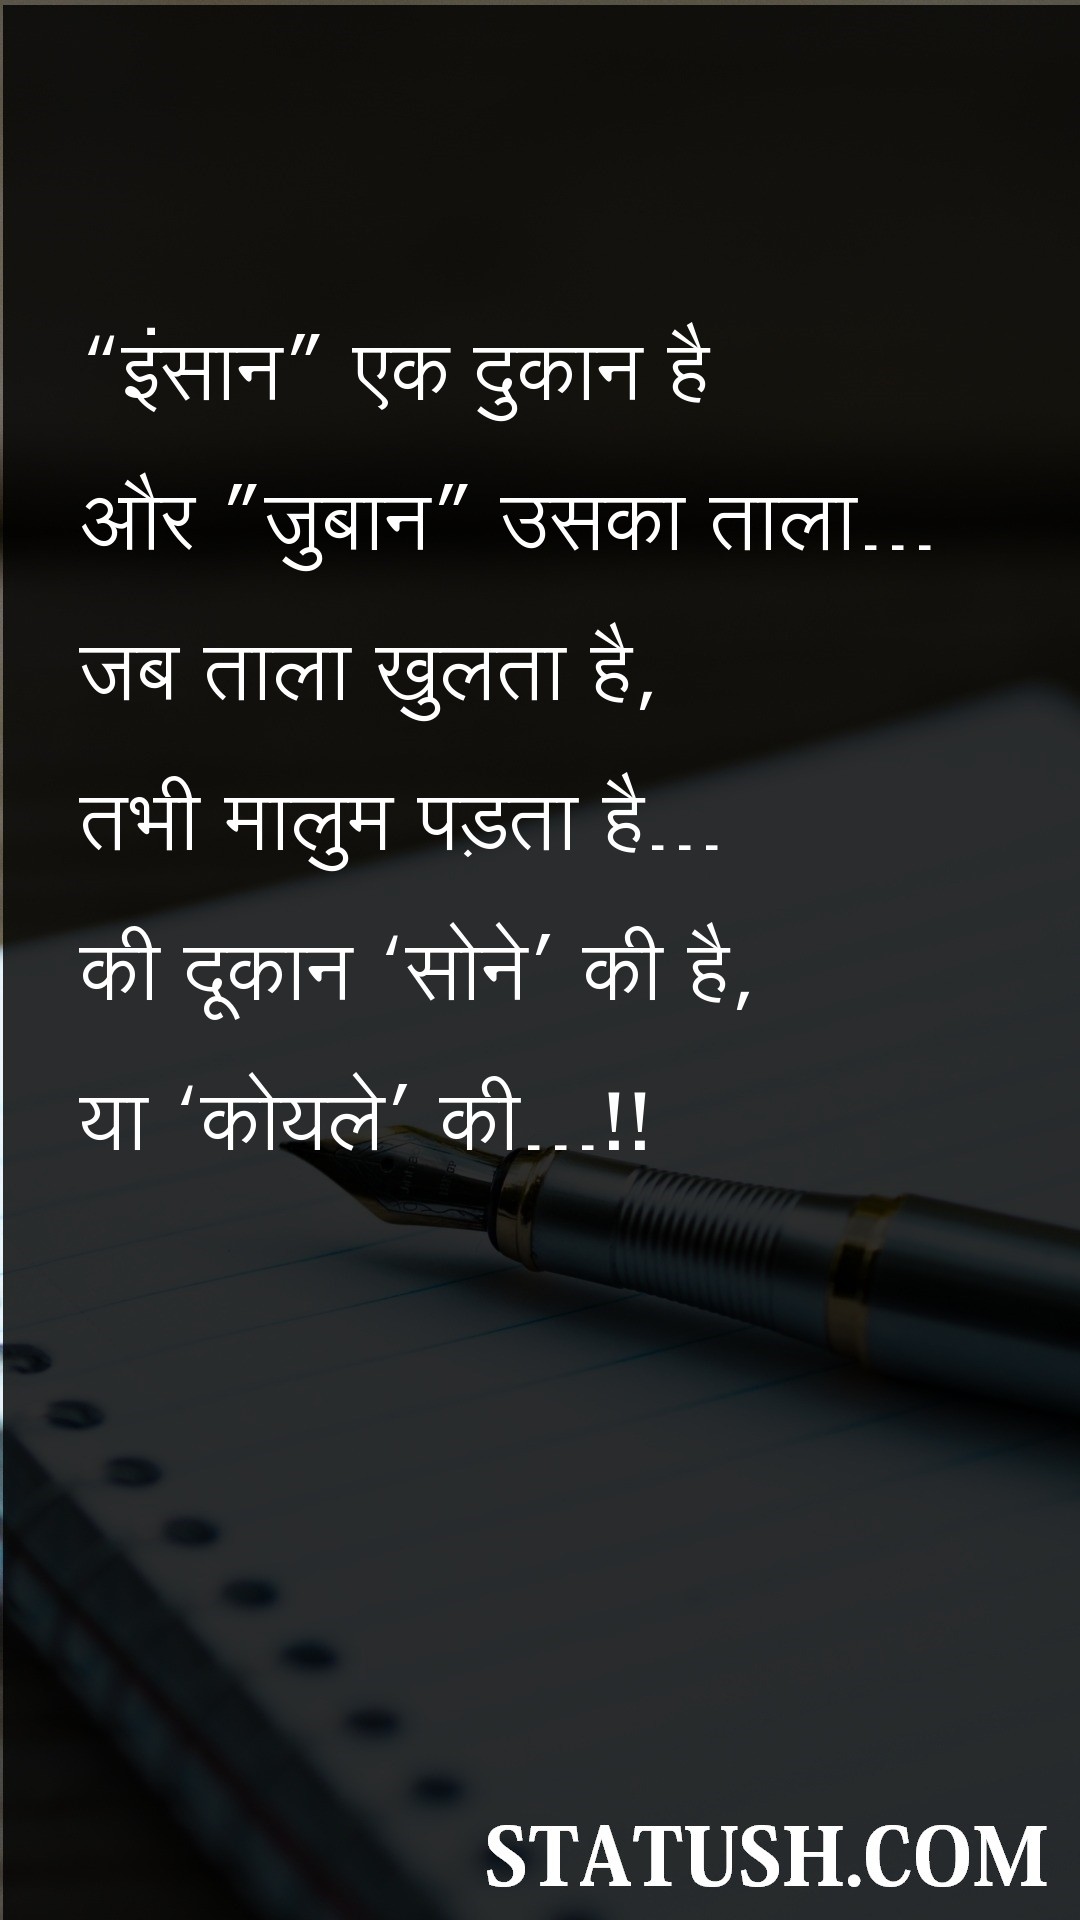 “इंसान” एक दुकान है
और ”जुबान” उसका ताला...
जब ताला खुलता है,
तभी मालुम पड़ता है...
की दूकान ‘सोने’ की है,
या ‘कोयले’ की...!!
STATUSH.COM